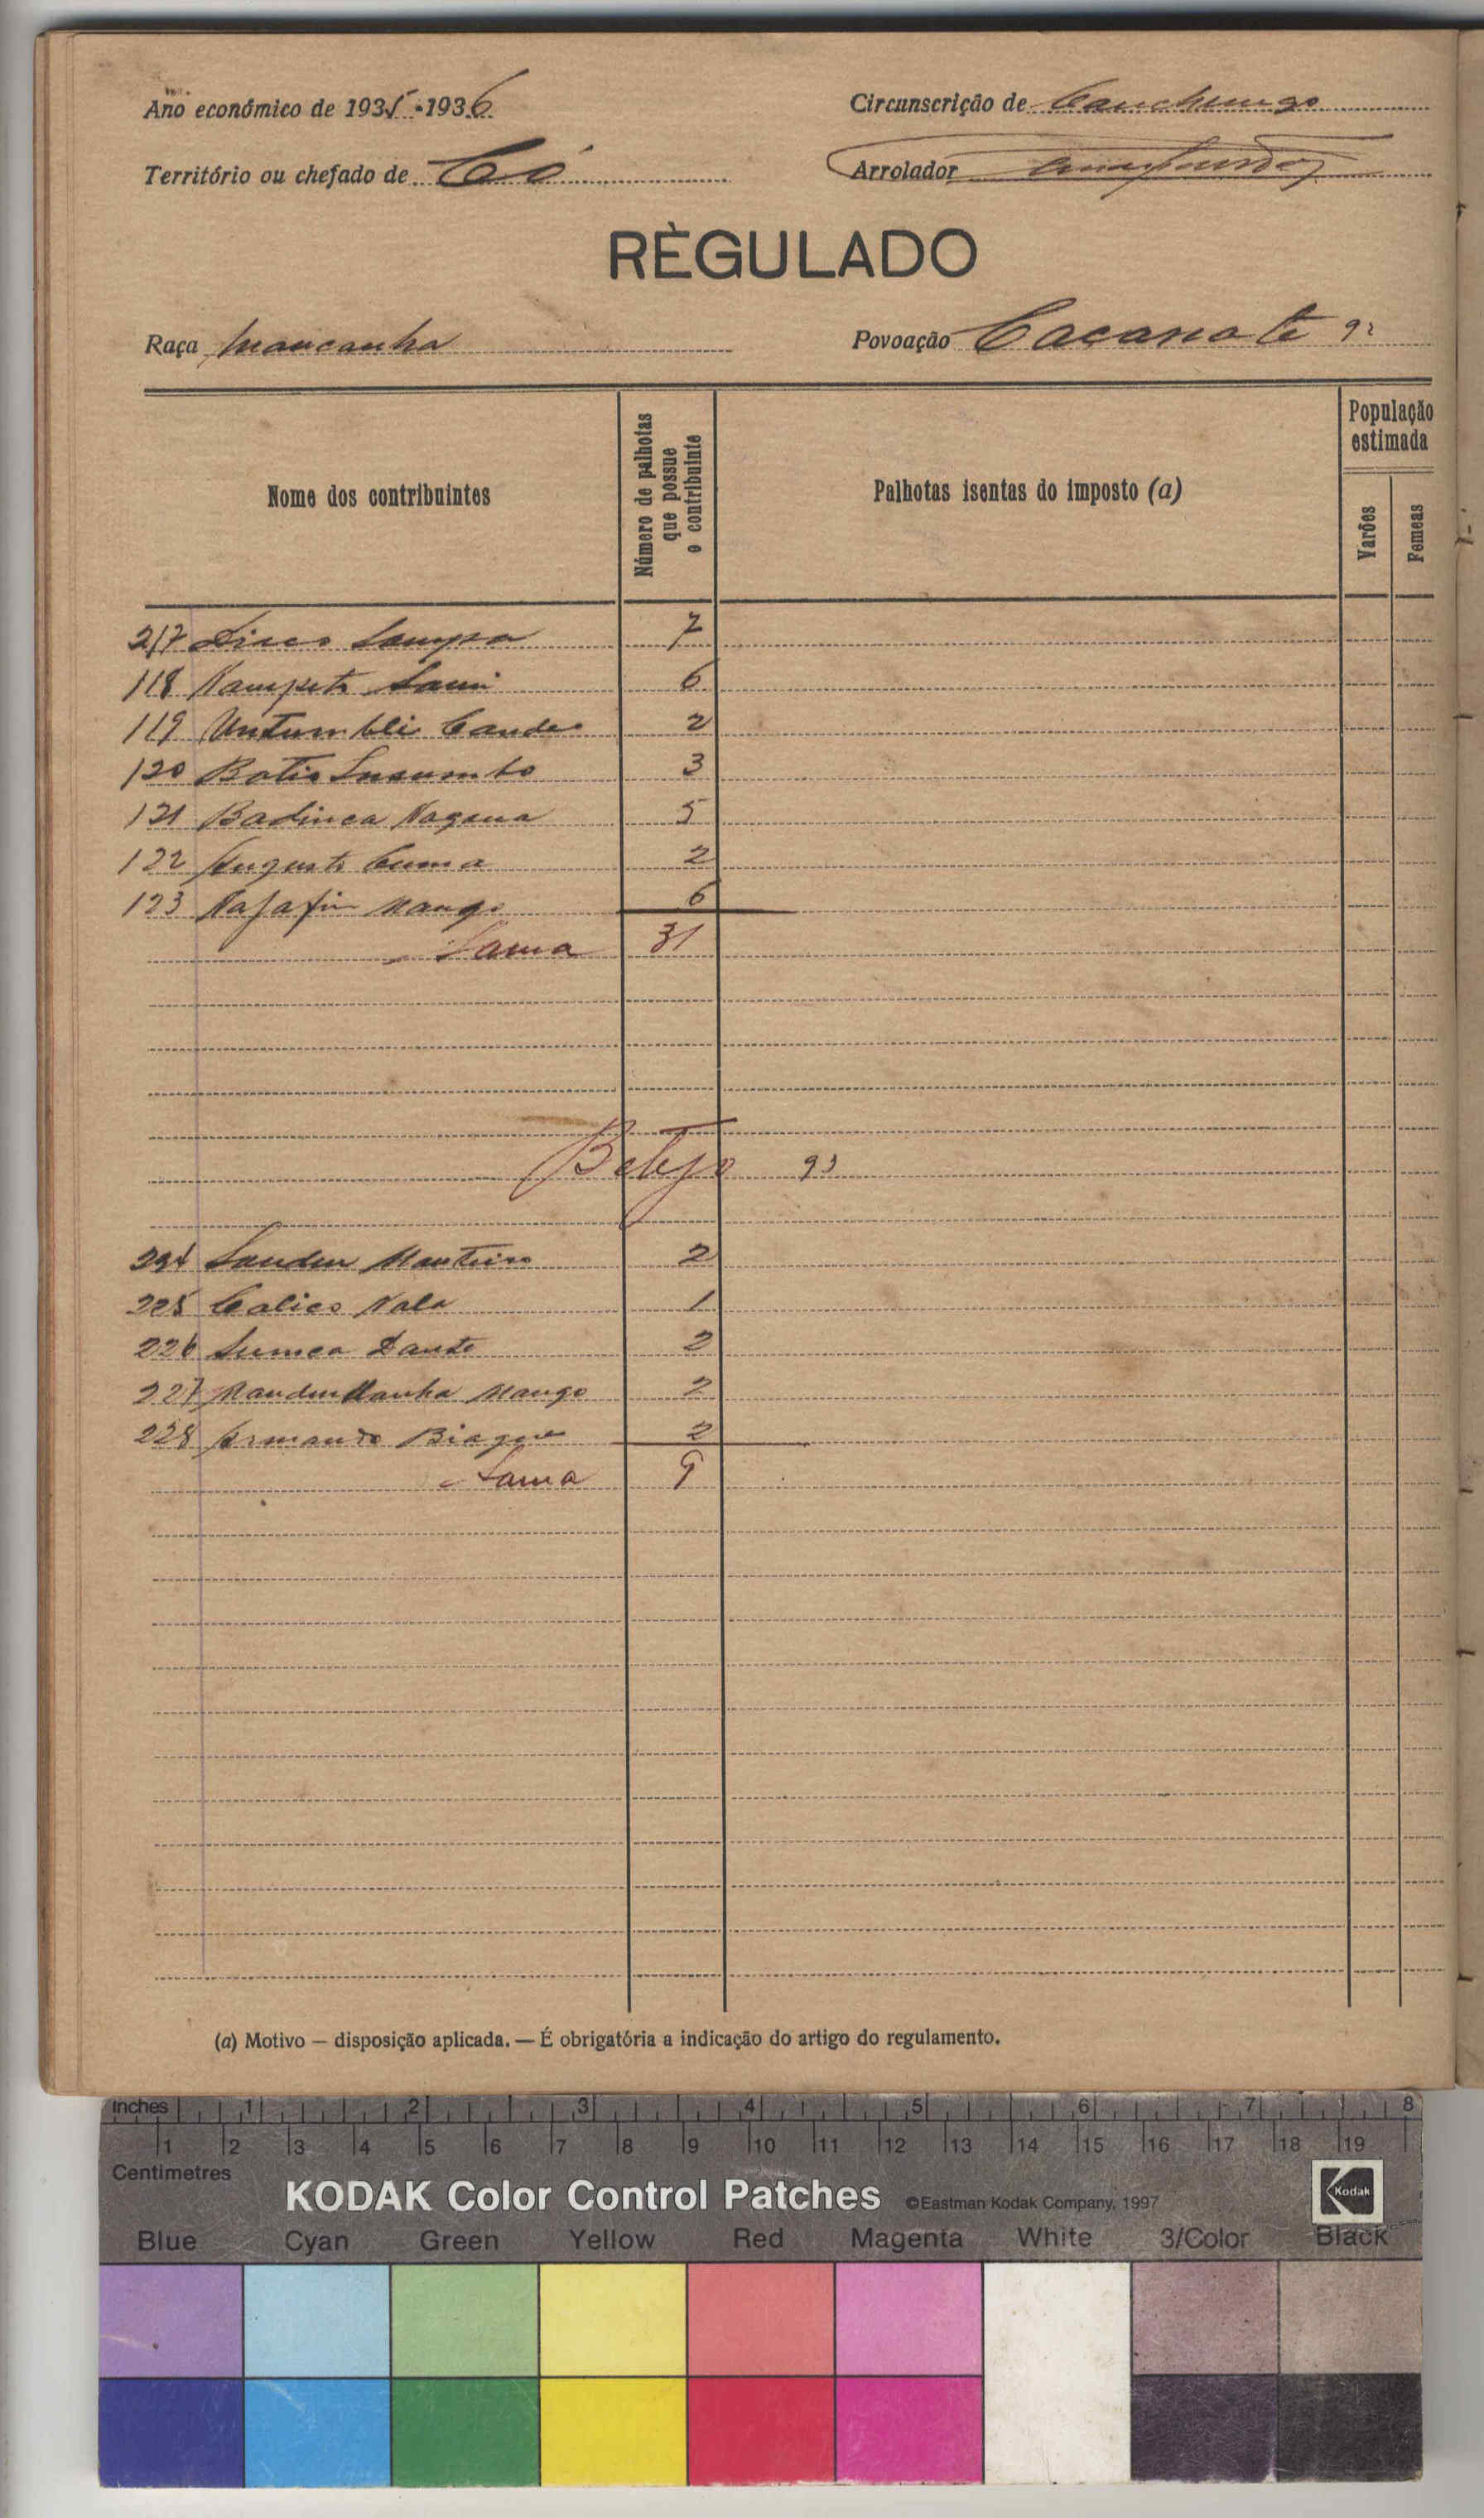 Ano económico de 1935-1936
Circunscrição de Canchungo
Território ou chefado de Có
Arrolador
RÈGULADO
Raça Mancanha
Povoação Cacanote 92
Nome dos contribuintes
Número de palhotas que possue o contribuinte
Palhotas isentas do imposto (a)
População estimada
Varões
Femeas
217 Sampa 7
118 6
119 Untumbli Cande 2
120 3
121 Badinca Nagana 5
122 Augusto Cuma 2
123 Mango 6
Soma 31
Betejo 93
224 Monteiro 2
225 Calico Nala 1
226 2
227 Mango 2
228 Armando Biague 2
Soma 9
(a) Motivo — disposição aplicada. — É obrigatória a indicação do artigo do regulamento.
inches 1 2 3 4 5 6 7 8
1 2 3 4 5 6 7 8 9 10 11 12 13 14 15 16 17 18 19
Centimetres
KODAK Color Control Patches ©Eastman Kodak Company, 1997 Kodak
Blue Cyan Green Yellow Red Magenta White 3/Color Black